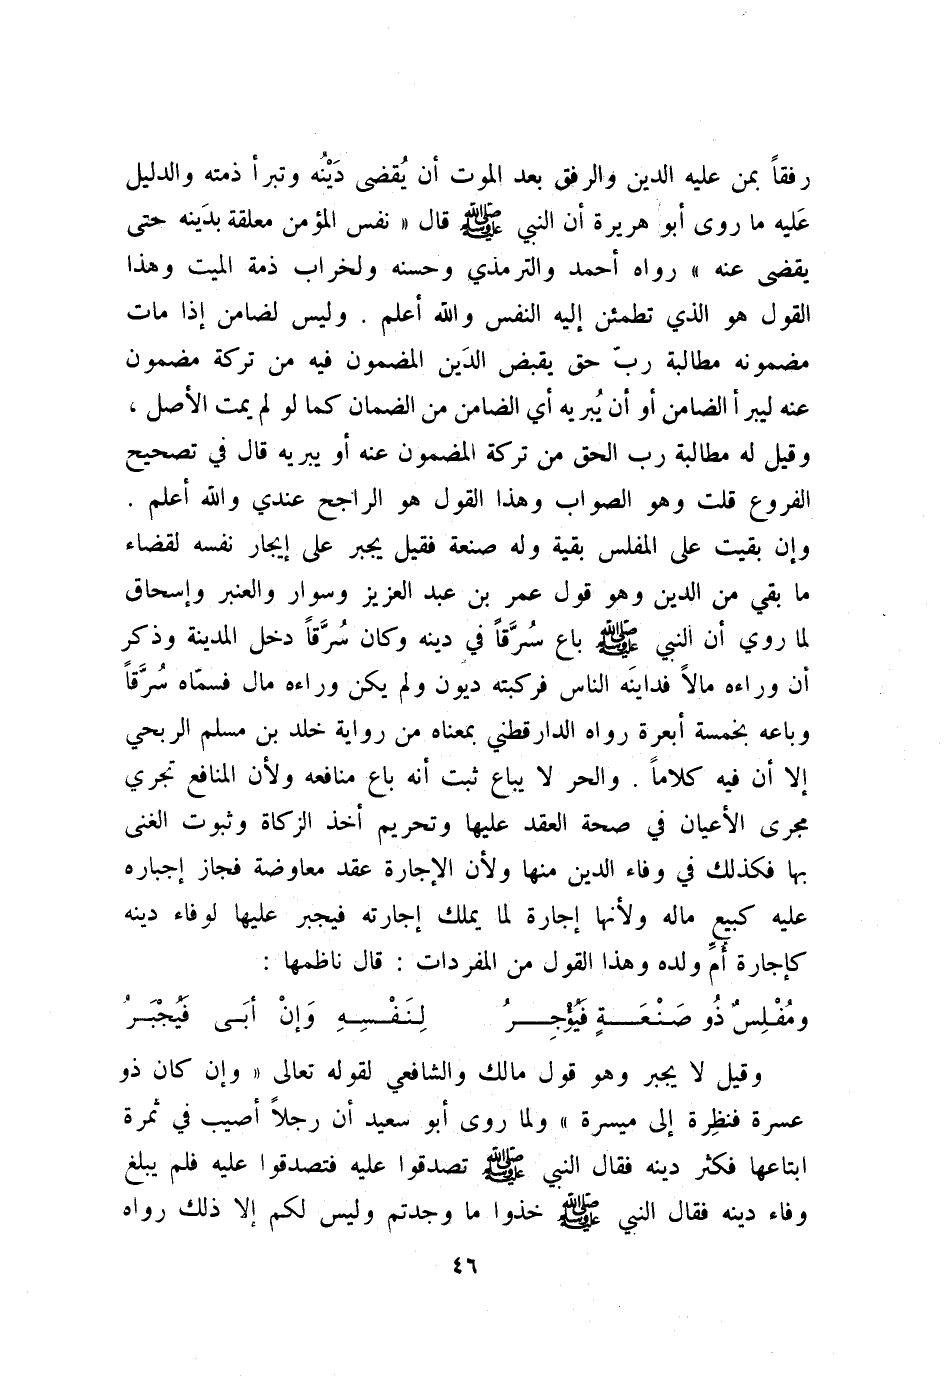 رفقاً بمن عليه الدين والرفق بعد الموت أن يُقضى دَيْنُه وتبرأ ذمته والدليل
عَليه ما روى أبو هريرة أن النبي ﷺ قال « نفس المؤمن معلقة بدَينه حتى
يقضى عنه » رواه أحمد والترمذي وحسنه ولخراب ذمة الميت وهذا
القول هو الذي تطمئن إليه النفس والله أعلم . وليس لضامن إذا مات
مضمونه مطالبة ربّ حق يقبض الدَين المضمون فيه من تركة مضمون
عنه ليبرأ الضامن أو أن يُبريه أي الضامن من الضمان كما لو لم يمت الأصل ،
وقيل له مطالبة رب الحق من تركة المضمون عنه أو يبريه قال في تصحيح
الفروع قلت وهو الصواب وهذا القول هو الراجح عندي والله أعلم .
وإن بقيت على المفلس بقية وله صنعة فقيل يجبر على إيجار نفسه لقضاء
ما بقي من الدين وهو قول عمر بن عبد العزيز وسوار والعنبر وإسحاق
لما روي أن النبي ﷺ باع سُرَّقاً في دينه وكان سُرَّقاً دخل المدينة وذكر
أن وراءه مالاً فداينَه الناس فركبته ديون ولم يكن وراءه مال فسمّاه سُرَّقاً
وباعه بخمسة أبعرة رواه الدارقطني بمعناه من رواية خلد بن مسلم الربحي
إلا أن فيه كلاماً . والحر لا يباع ثبت أنه باع منافعه ولأن المنافع تجري
مجرى الأعيان في صحة العقد عليها وتحريم أخذ الزكاة وثبوت الغنى
بها فكذلك في وفاء الدين منها ولأن الإجارة عقد معاوضة فجاز إجباره
عليه كبيع ماله ولأنها إجارة لما يملك إجارته فيجبر عليها لوفاء دينه
كإجارة أُمِّ ولده وهذا القول من المفردات : قال ناظمها :
ومُفْلِسٌ ذُو صَنْعَـــةٍ فَيُؤْجِـــرُ لِنَفْـــسِهِ وَإِنْ أَبَـى فَيُجْبَـرُ
وقيل لا يجبر وهو قول مالك والشافعي لقوله تعالى « وإن كان ذو
عسرة فنظِرة إلى ميسرة » ولما روى أبو سعيد أن رجلاً أصيب في ثمرة
ابتاعها فكثر دينه فقال النبي ﷺ تصدقوا عليه فتصدقوا عليه فلم يبلغ
وفاء دينه فقال النبي ﷺ خذوا ما وجدتم وليس لكم إلا ذلك رواه
٤٦